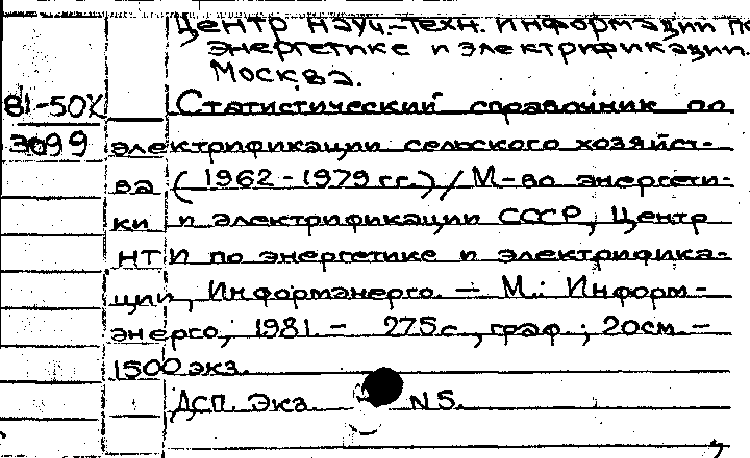 Центр науч.-техн. информации по
энергетике и электрификации.
Москва.
81-50X Статистический справочник по
3099 электрификации сельского хозяйст-
ва (1962-1979 гг.) / М-во энергети-
ки и электрификации СССР, Центр
НТИ по энергетике и электрифика-
ции, Информэнерго. — М.: Информ-
энерго, 1981. - 275с., граф.; 20см. -
1500 экз.
ДСП. Экз. N5.